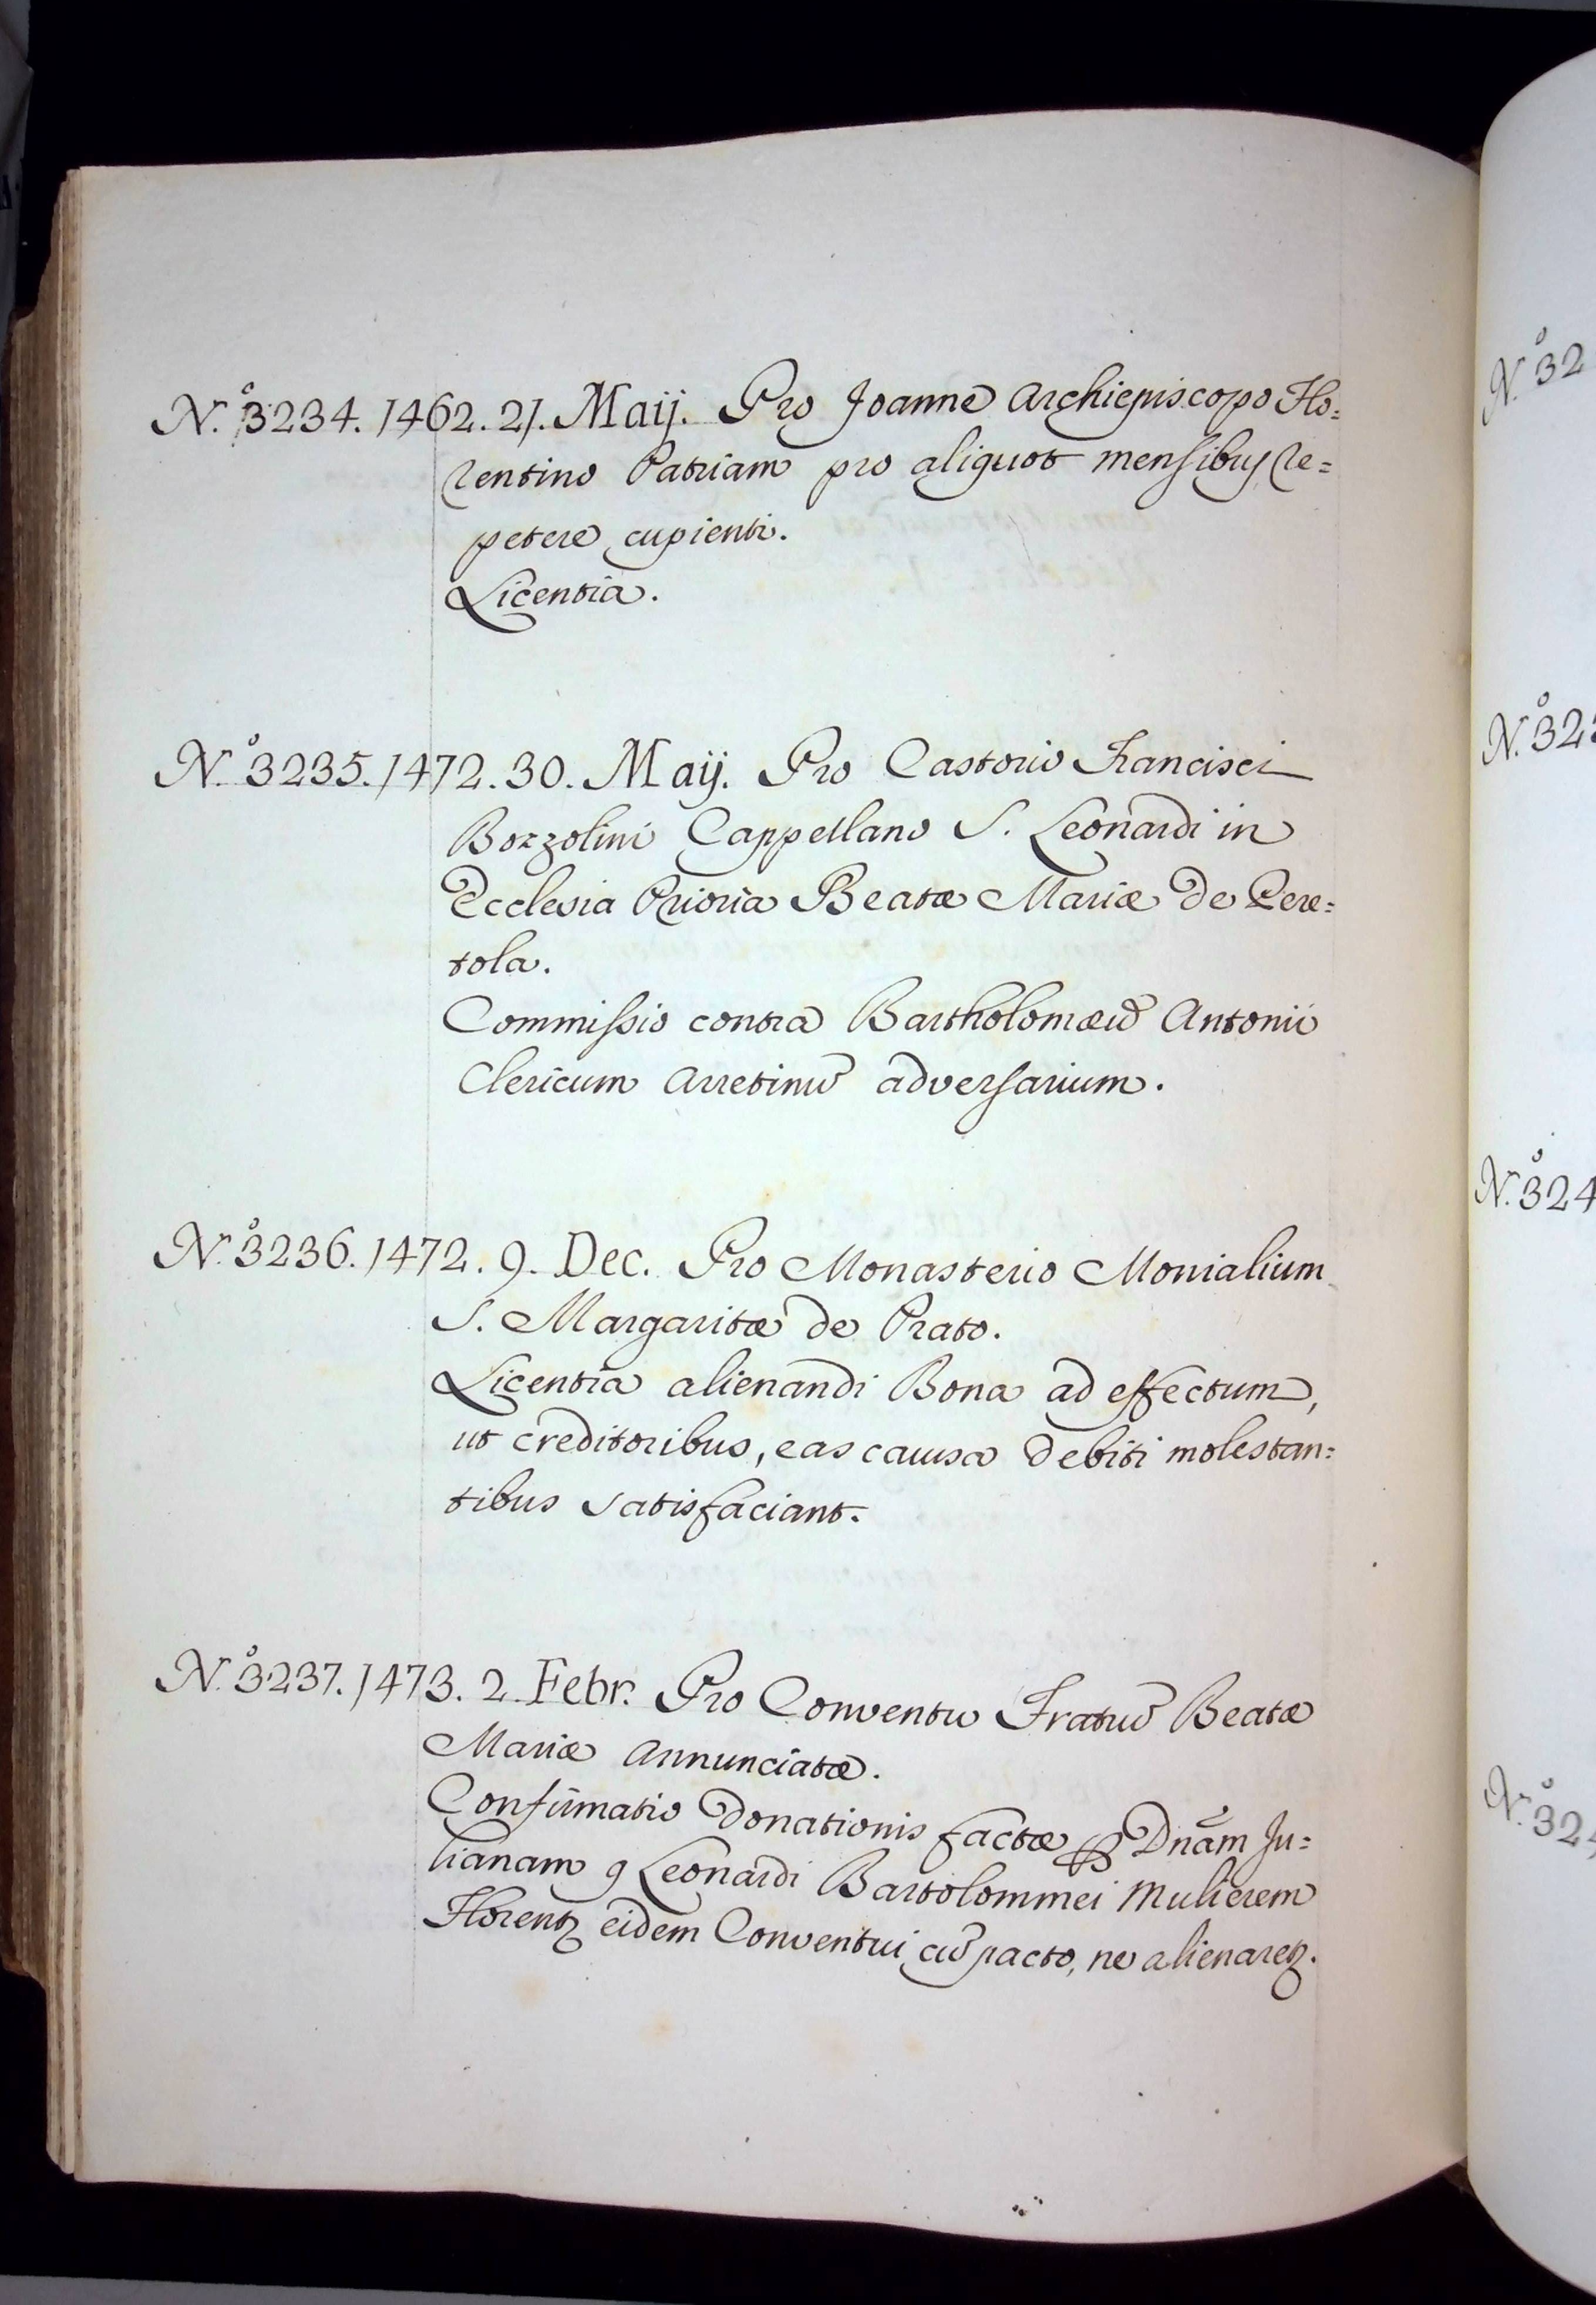 N.º 3234. 1462. 21. Maij. Pro Joanne Archiepiscopo Flo=
rentino Patriam pro aliquot mensibus re=
petere cupienti.
Licentia.
N.º 3235. 1472. 30. Maij. Pro Castorio Francisci
Bozzolini Cappellano S. Leonardi in
Ecclesia Prioria Beatæ Mariæ de Pere=
tola.
Commissio contra Bartholomæū Antonii
Clericum Arretinū adversarium.
N.º 3236. 1472. 9. Dec. Pro Monasterio Monialium
S. Margaritæ de Prato.
Licentia alienandi Bona ad effectum,
ut creditoribus, eas causa debiti molestan=
tibus satisfaciant.
N.º 3237. 1473. 2. Febr. Pro Conventu Fratrū Beatæ
Mariæ Annunciatæ.
Confirmatio Donationis factæ ꝑ Dnãm Ju=
lianam q Leonardi Bartolommei Mulierem
Florentꝫ eidem Conventui cū pacto, ne alienaretꝫ.
N.º 32
N.º 32
N.º 324
N.º 32